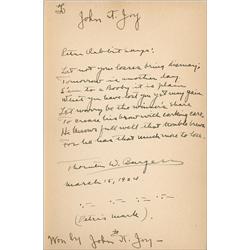 John A. Joy
Peter Rabbit says:
Let not your losses bring dismay;
Tomorrow is another day.
E'en to a Booby it is plain
What you have lost you yet may gain.
Let worry be the winner's share
To crease his brow with carking care.
He knows full well that trouble brews
For he has that much more to lose.
Thornton W. Burgess
March 15, 1924
(Peter's mark.)
Won by John A. Joy—